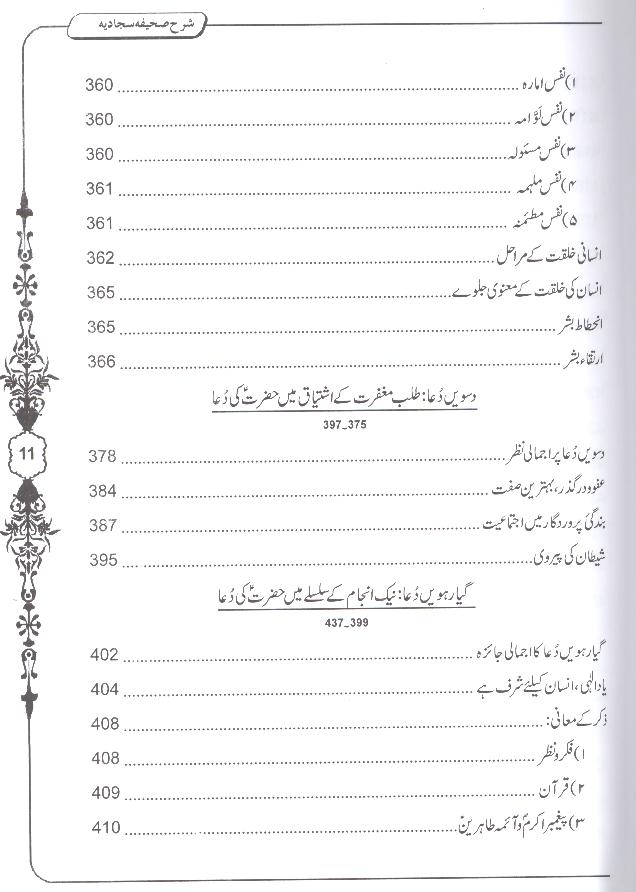 شرح صحیفہ سجادیہ
۱) نفس امارہ ........ 360
۲) نفس لوَّامہ ........ 360
۳) نفس مسئولہ ........ 360
۴) نفس ملہمہ ........ 361
۵) نفس مطمئنہ ........ 361
انسانی خلقت کے مراحل ........ 362
انسان کی خلقت کے معنوی جلوے ........ 365
انحطاط بشر ........ 365
ارتقاء بشر ........ 366
دسویں دُعا: طلب مغفرت کے اشتیاق میں حضرتؑ کی دُعا
397_375
11
دسویں دُعا پر اجمالی نظر ........ 378
عفو و درگذر، بہترین صفت ........ 384
بندگی پروردگار میں اجتماعیت ........ 387
شیطان کی پیروی ........ 395
گیارہویں دُعا: نیک انجام کے سلسلے میں حضرتؑ کی دُعا
437_399
گیارہویں دُعا کا اجمالی جائزہ ........ 402
یاد الٰہی، انسان کیلئے شرف ہے ........ 404
ذکر کے معانی: ........ 408
۱) فکر و نظر ........ 408
۲) قرآن ........ 409
۳) پیغمبر اکرمؐ و آئمہ طاہرینؑ ........ 410